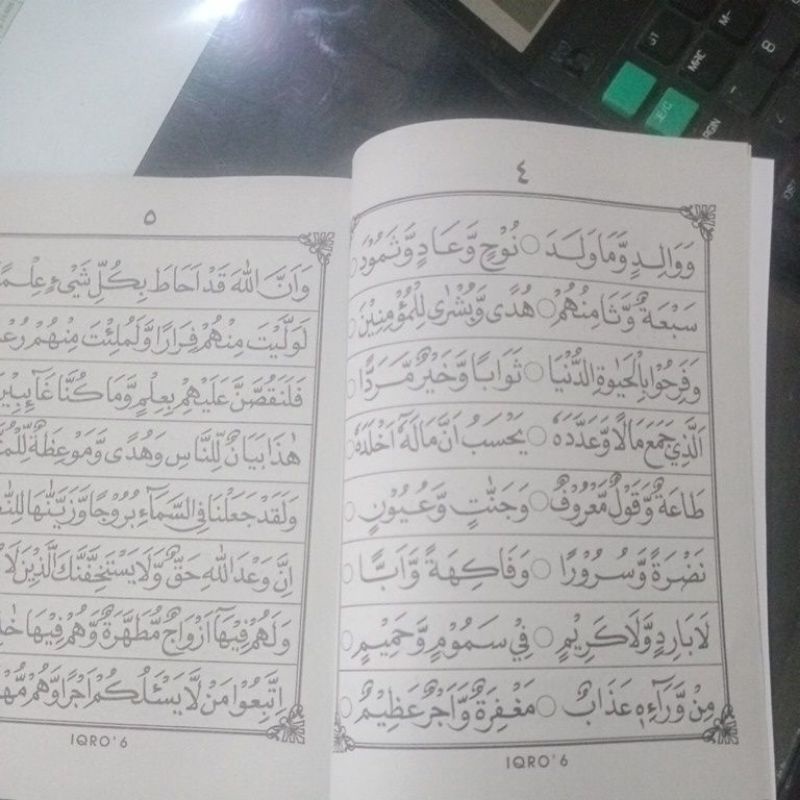 ٤
وَوَالِدٍ وَّمَا وَلَدَ ○ نُوْحٍ وَّعَادٍ وَّثَمُوْدَ ○
سَبْعَةٌ وَّثَامِنُهُمْ ○ هُدًى وَّبُشْرٰى لِلْمُؤْمِنِيْنَ ○
وَفَرِحُوْا بِالْحَيٰوةِ الدُّنْيَا ○ ثَوَابًا وَّخَيْرٌ مَّرَدًّا ○
اَلَّذِيْ جَمَعَ مَالًا وَّعَدَّدَهٗ ○ يَحْسَبُ اَنَّ مَالَهٗٓ اَخْلَدَهٗ ○
طَاعَةٌ وَّقَوْلٌ مَّعْرُوْفٌ ○ وَجَنّٰتٍ وَّعُيُوْنٍ ○
نَضْرَةً وَّسُرُوْرًا ○ وَفَاكِهَةً وَّاَبًّا ○
لَا بَارِدٍ وَّلَا كَرِيْمٍ ○ فِيْ سَمُوْمٍ وَّحَمِيْمٍ ○
مِنْ وَّرَآءِهٖ عَذَابٌ ○ مَغْفِرَةٌ وَّاَجْرٌ عَظِيْمٌ ○
IQRO'6
٥
وَاَنَّ اللّٰهَ قَدْ اَحَاطَ بِكُلِّ شَيْءٍ عِلْمًا
لَوَلَّيْتَ مِنْهُمْ فِرَارًا وَّلَمُلِئْتَ مِنْهُمْ
فَلَنَقُصَّنَّ عَلَيْهِمْ بِعِلْمٍ وَّمَا كُنَّا غَآئِبِيْنَ
هٰذَا بَيَانٌ لِّلنَّاسِ وَهُدًى وَّمَوْعِظَةٌ
وَلَقَدْ جَعَلْنَا فِى السَّمَآءِ بُرُوْجًا وَّزَيَّنّٰهَا
اِنَّ وَعْدَ اللّٰهِ حَقٌّ وَّلَا يَسْتَخِفَّنَّكَ الَّذِيْنَ لَا
وَلَهُمْ فِيْهَآ اَزْوَاجٌ مُّطَهَّرَةٌ وَّهُمْ فِيْهَا
اتَّبِعُوْا مَنْ لَّا يَسْـَٔلُكُمْ اَجْرًا وَّهُمْ
IQRO'6
GT
MRC
M-
8